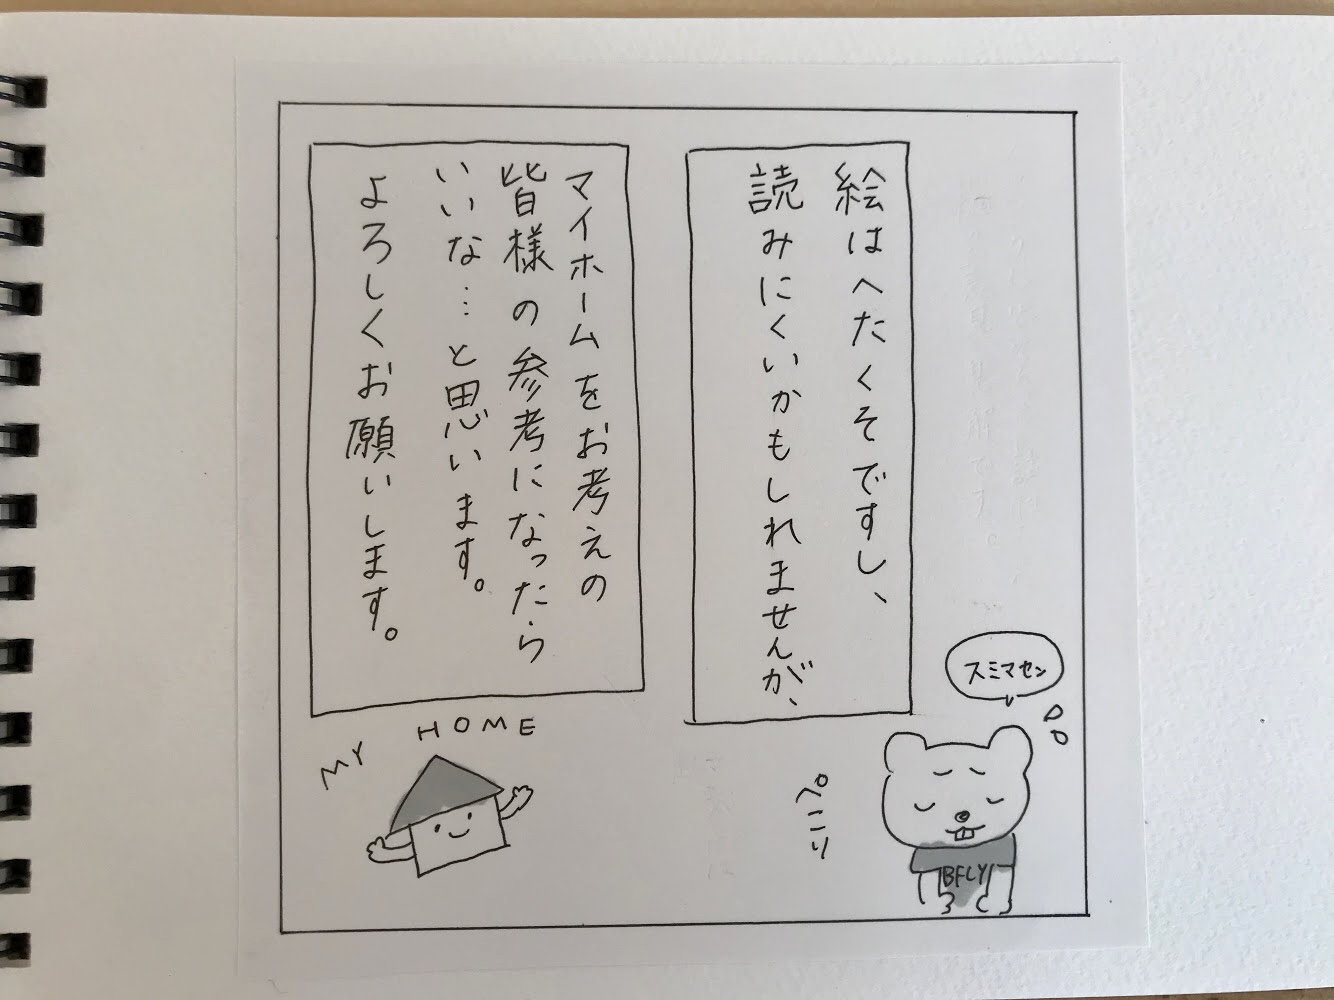 絵はへたくそですし、
読みにくいかもしれませんが、
スミマセン
ペこり
BFLY
マイホームをお考えの
皆様の参考になったら
いいな…と思います。
よろしくお願いします。
MY HOME